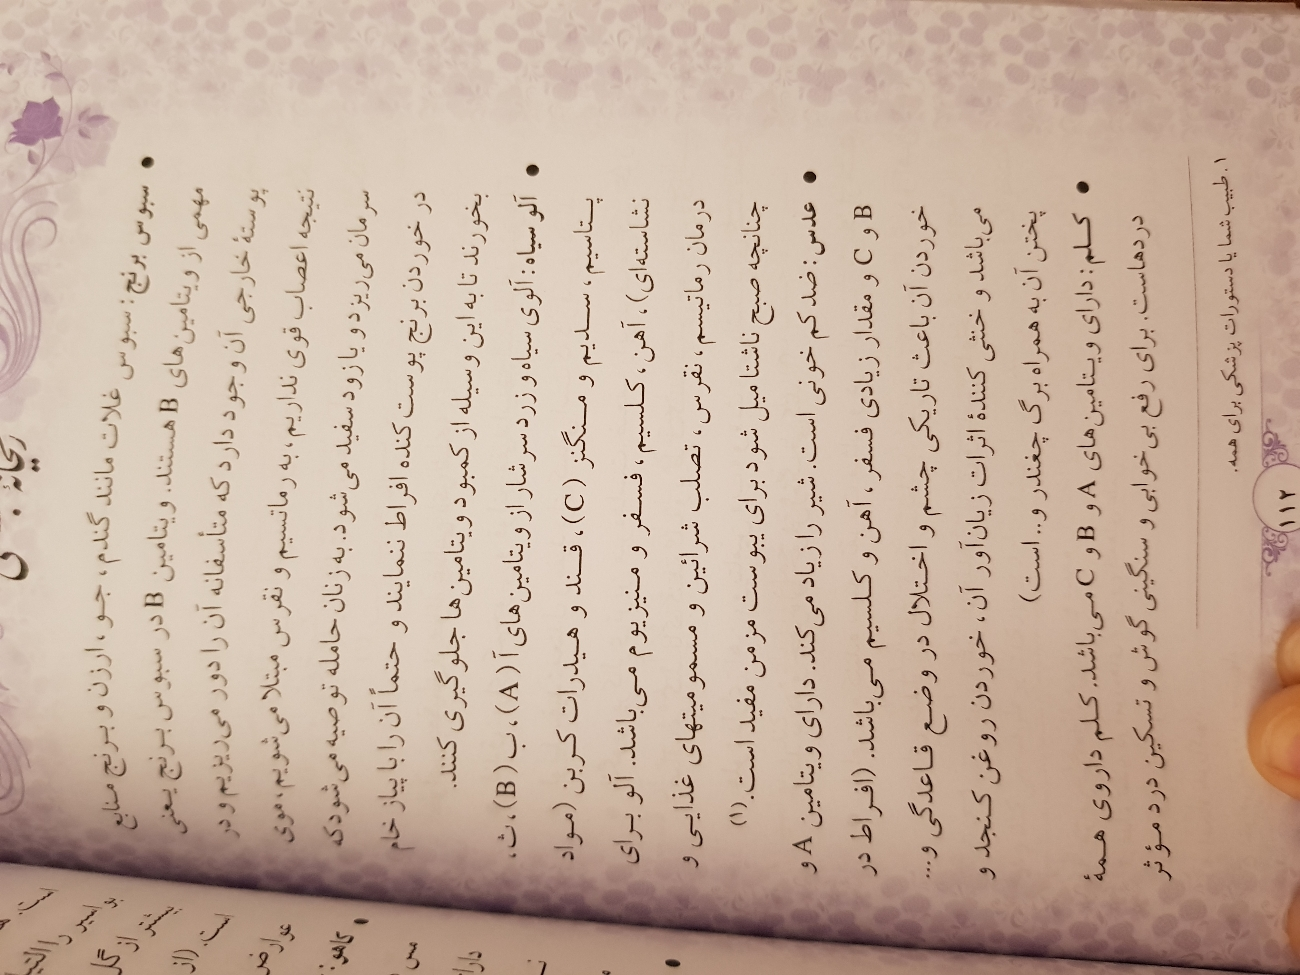 ● سبوس برنج: سبوس غلات مانند گندم، جو، ارزن و برنج منابع
مهمی از ویتامین‌های B هستند. ویتامین B در سبوس برنج یعنی
پوستهٔ خارجی آن وجود دارد که متأسفانه آن را دور می‌ریزیم و در
نتیجه اعصاب قوی نداریم، به رماتیسم و نقرس مبتلا می‌شویم، موی
سرمان می‌ریزد و یا زود سفید می‌شود. به زنان حامله توصیه می‌شود که
در خوردن برنج پوست کنده افراط ننمایند و حتماً آن را با پیاز خام
بخورند تا به این وسیله از کمبود ویتامین‌ها جلوگیری کنند.
● آلو سیاه: آلوی سیاه و زرد سرشار از ویتامین‌های آ (A)، ب (B)، ث،
پتاسیم، سدیم و منگنز (C)، قند و هیدرات کربن (مواد
نشاسته‌ای)، آهن، کلسیم، فسفر و منیزیوم می‌باشد. آلو برای
درمان رماتیسم، نقرس، تصلب شرائین و مسمومیتهای غذایی و
چنانچه صبح ناشتا میل شود برای یبوست مزمن مفید است.(۱)
● عدس: ضد کم خونی است. شیر را زیاد می‌کند. دارای ویتامین A و
B و C و مقدار زیادی فسفر، آهن و کلسیم می‌باشد. (افراط در
خوردن آن باعث تاریکی چشم و اختلال در وضع قاعدگی و...
می‌باشد و خنثی کنندهٔ اثرات زیان‌آور آن، خوردن روغن کنجد و
پختن آن به همراه برگ چغندر و.. است)
● کلم: دارای ویتامین‌های A و B و C می‌باشد. کلم داروی همهٔ
دردهاست. برای رفع بی خوابی و سنگینی گوش و تسکین درد مؤثر
۱. طبیب شما یا دستورات پزشکی برای همه.
۱۱۲
● کاهو: